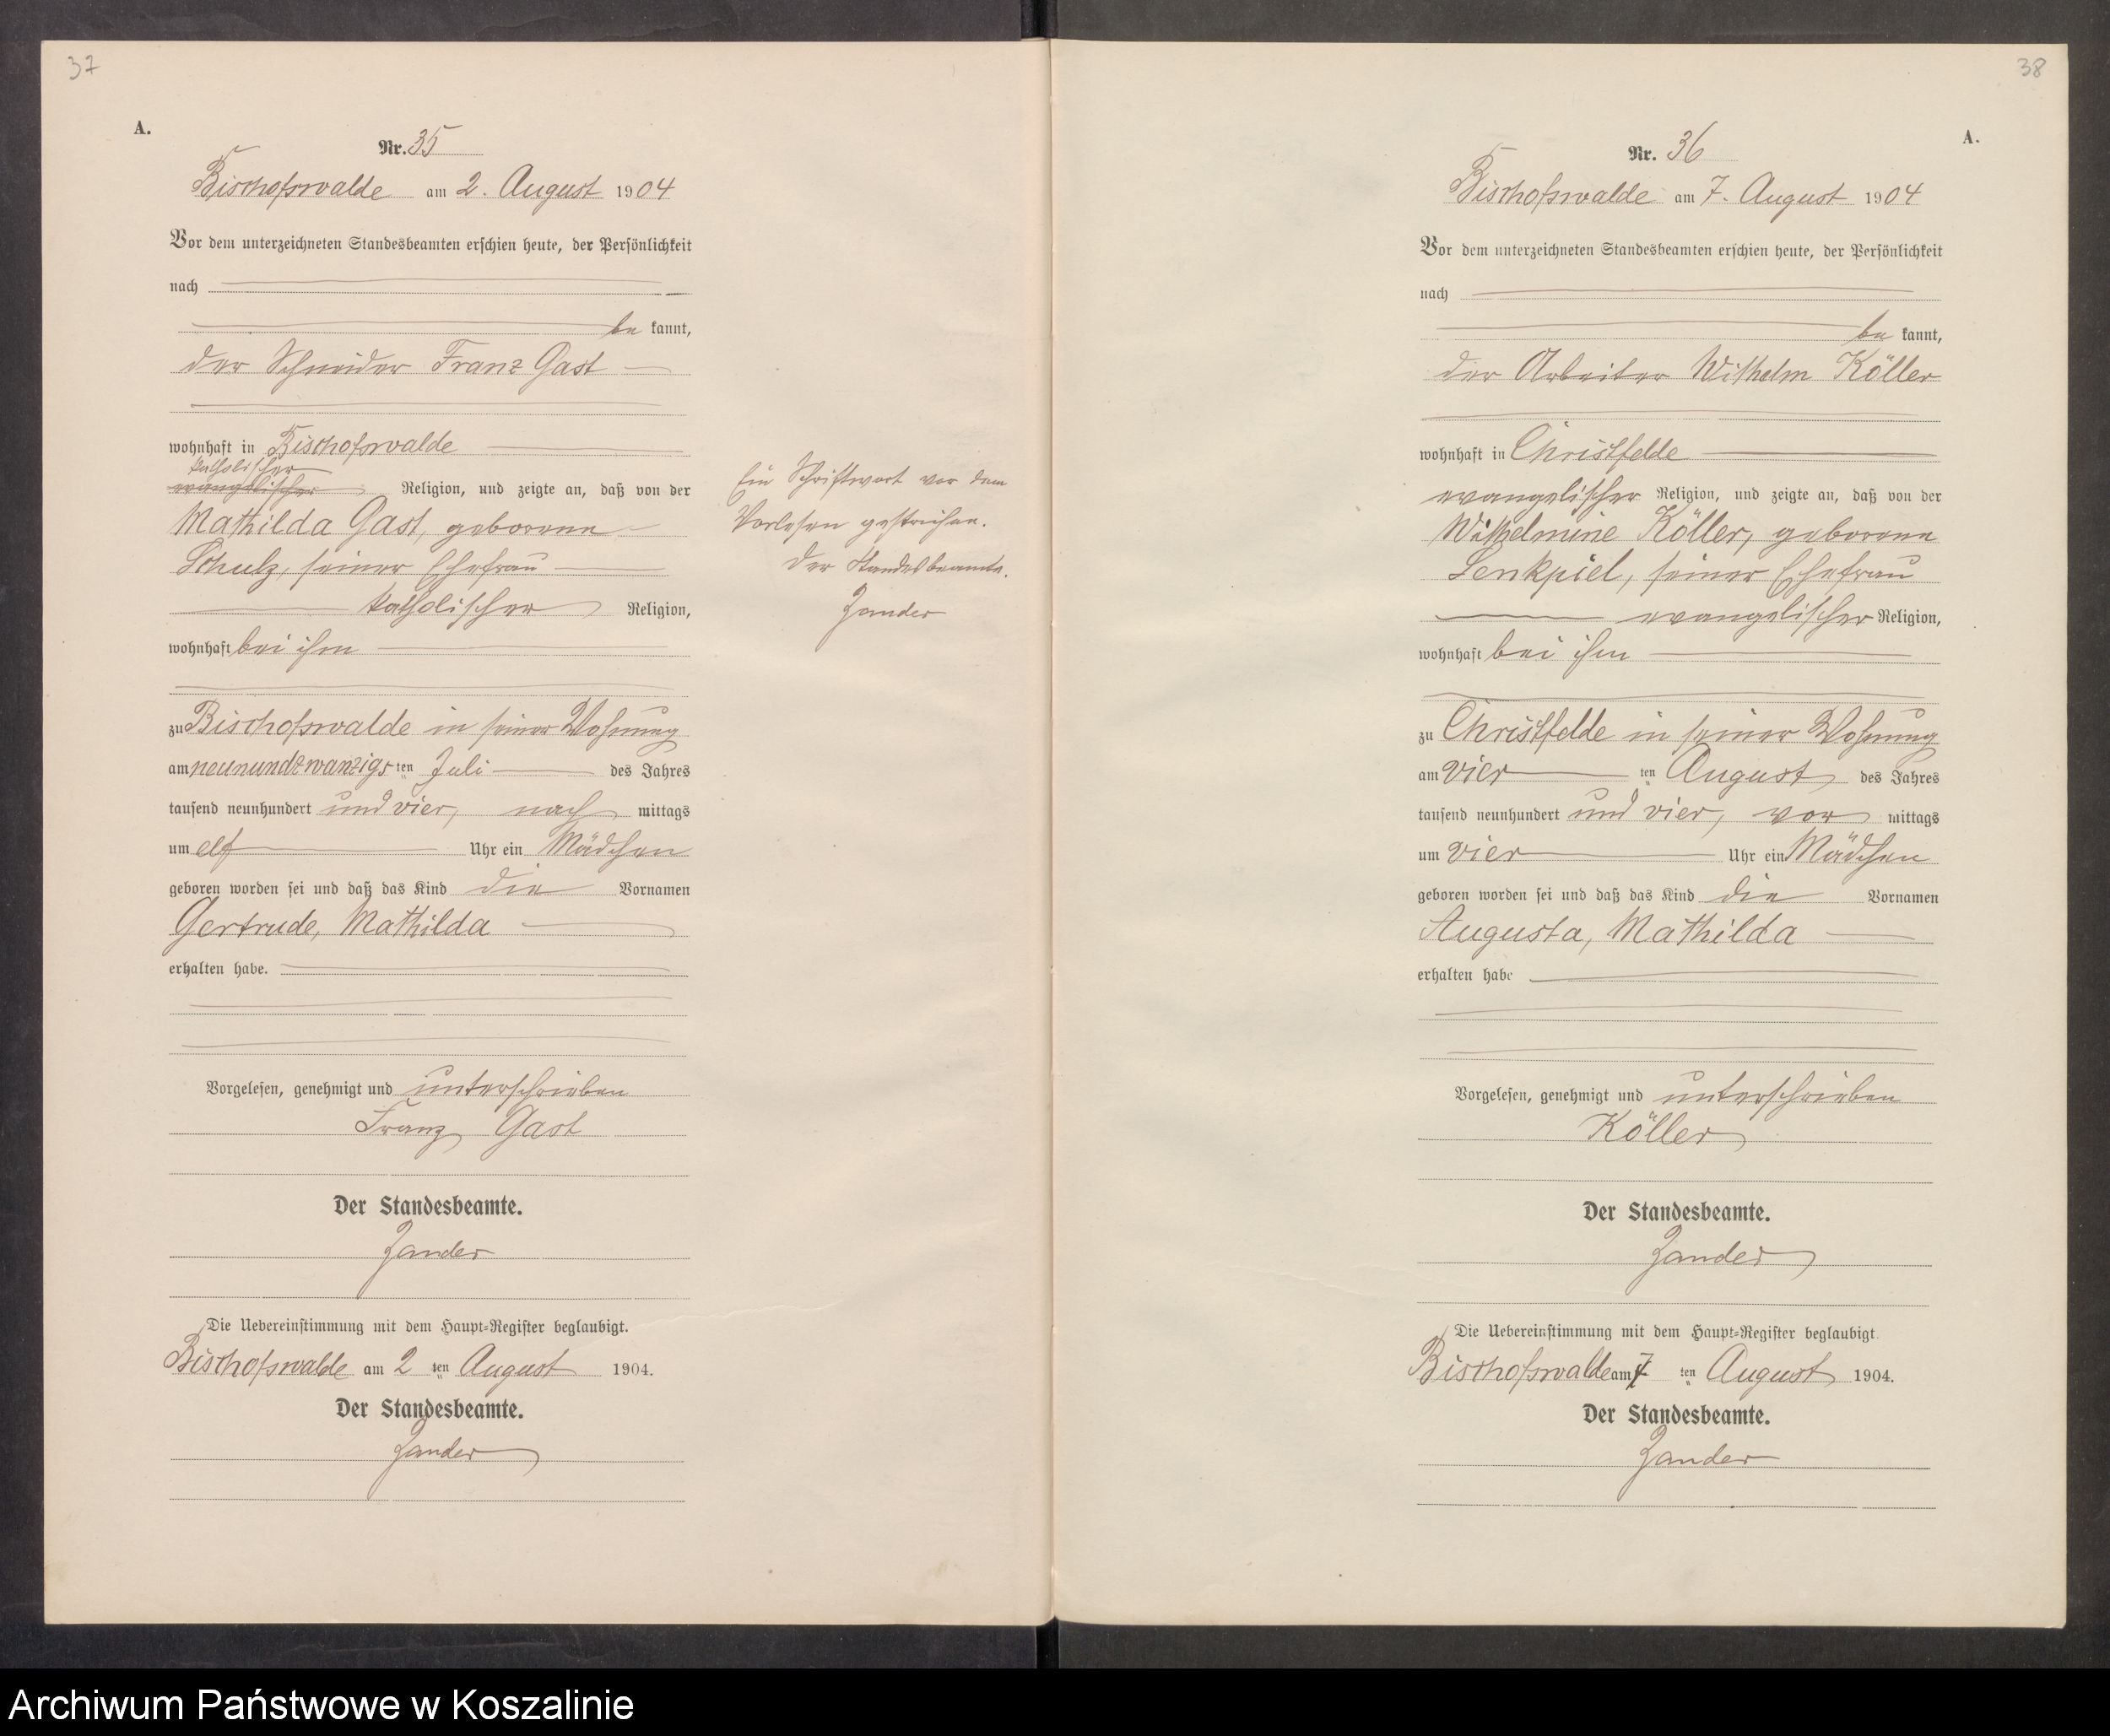 37
A.
Nr. 35
Bischofswalde am 2. August 1904
Vor dem unterzeichneten Standesbeamten erschien heute, der Persönlichkeit
nach
be kannt,
der Schneider Franz Gast
wohnhaft in Bischofswalde
katholischer
evangelischer Religion, und zeigte an, daß von der
Mathilda Gast, geborene
Schulz, seiner Ehefrau
katholischer Religion,
wohnhaft bei ihm
zu Bischofswalde in seiner Wohnung
am neunundzwanzigsten Juli des Jahres
tausend neunhundert und vier, nach mittags
um elf Uhr ein Mädchen
geboren worden sei und daß das Kind die Vornamen
Gertrude, Mathilda
erhalten habe.
Vorgelesen, genehmigt und unterschrieben
Franz Gast
Der Standesbeamte.
Zander
Die Uebereinstimmung mit dem Haupt-Register beglaubigt.
Bischofswalde am 2 ten August 1904.
Der Standesbeamte.
Zander
Ein Schriftwort vor dem
Vorlesen gestrichen.
Der Standesbeamte.
Zander
38
A.
Nr. 36
Bischofswalde am 7. August 1904
Vor dem unterzeichneten Standesbeamten erschien heute, der Persönlichkeit
nach
be kannt,
der Arbeiter Wilhelm Köller
wohnhaft in Christfelde
evangelischer Religion, und zeigte an, daß von der
Wilhelmine Köller, geborene
Lenkpiel, seiner Ehefrau
evangelischer Religion,
wohnhaft bei ihm
zu Christfelde in seiner Wohnung
am vier ten August des Jahres
tausend neunhundert und vier, vor mittags
um vier Uhr ein Mädchen
geboren worden sei und daß das Kind die Vornamen
Augusta, Mathilda
erhalten habe
Vorgelesen, genehmigt und unterschrieben
Köller
Der Standesbeamte.
Zander
Die Uebereinstimmung mit dem Haupt-Register beglaubigt.
Bischofswalde am 7 ten August 1904.
Der Standesbeamte.
Zander
Archiwum Państwowe w Koszalinie